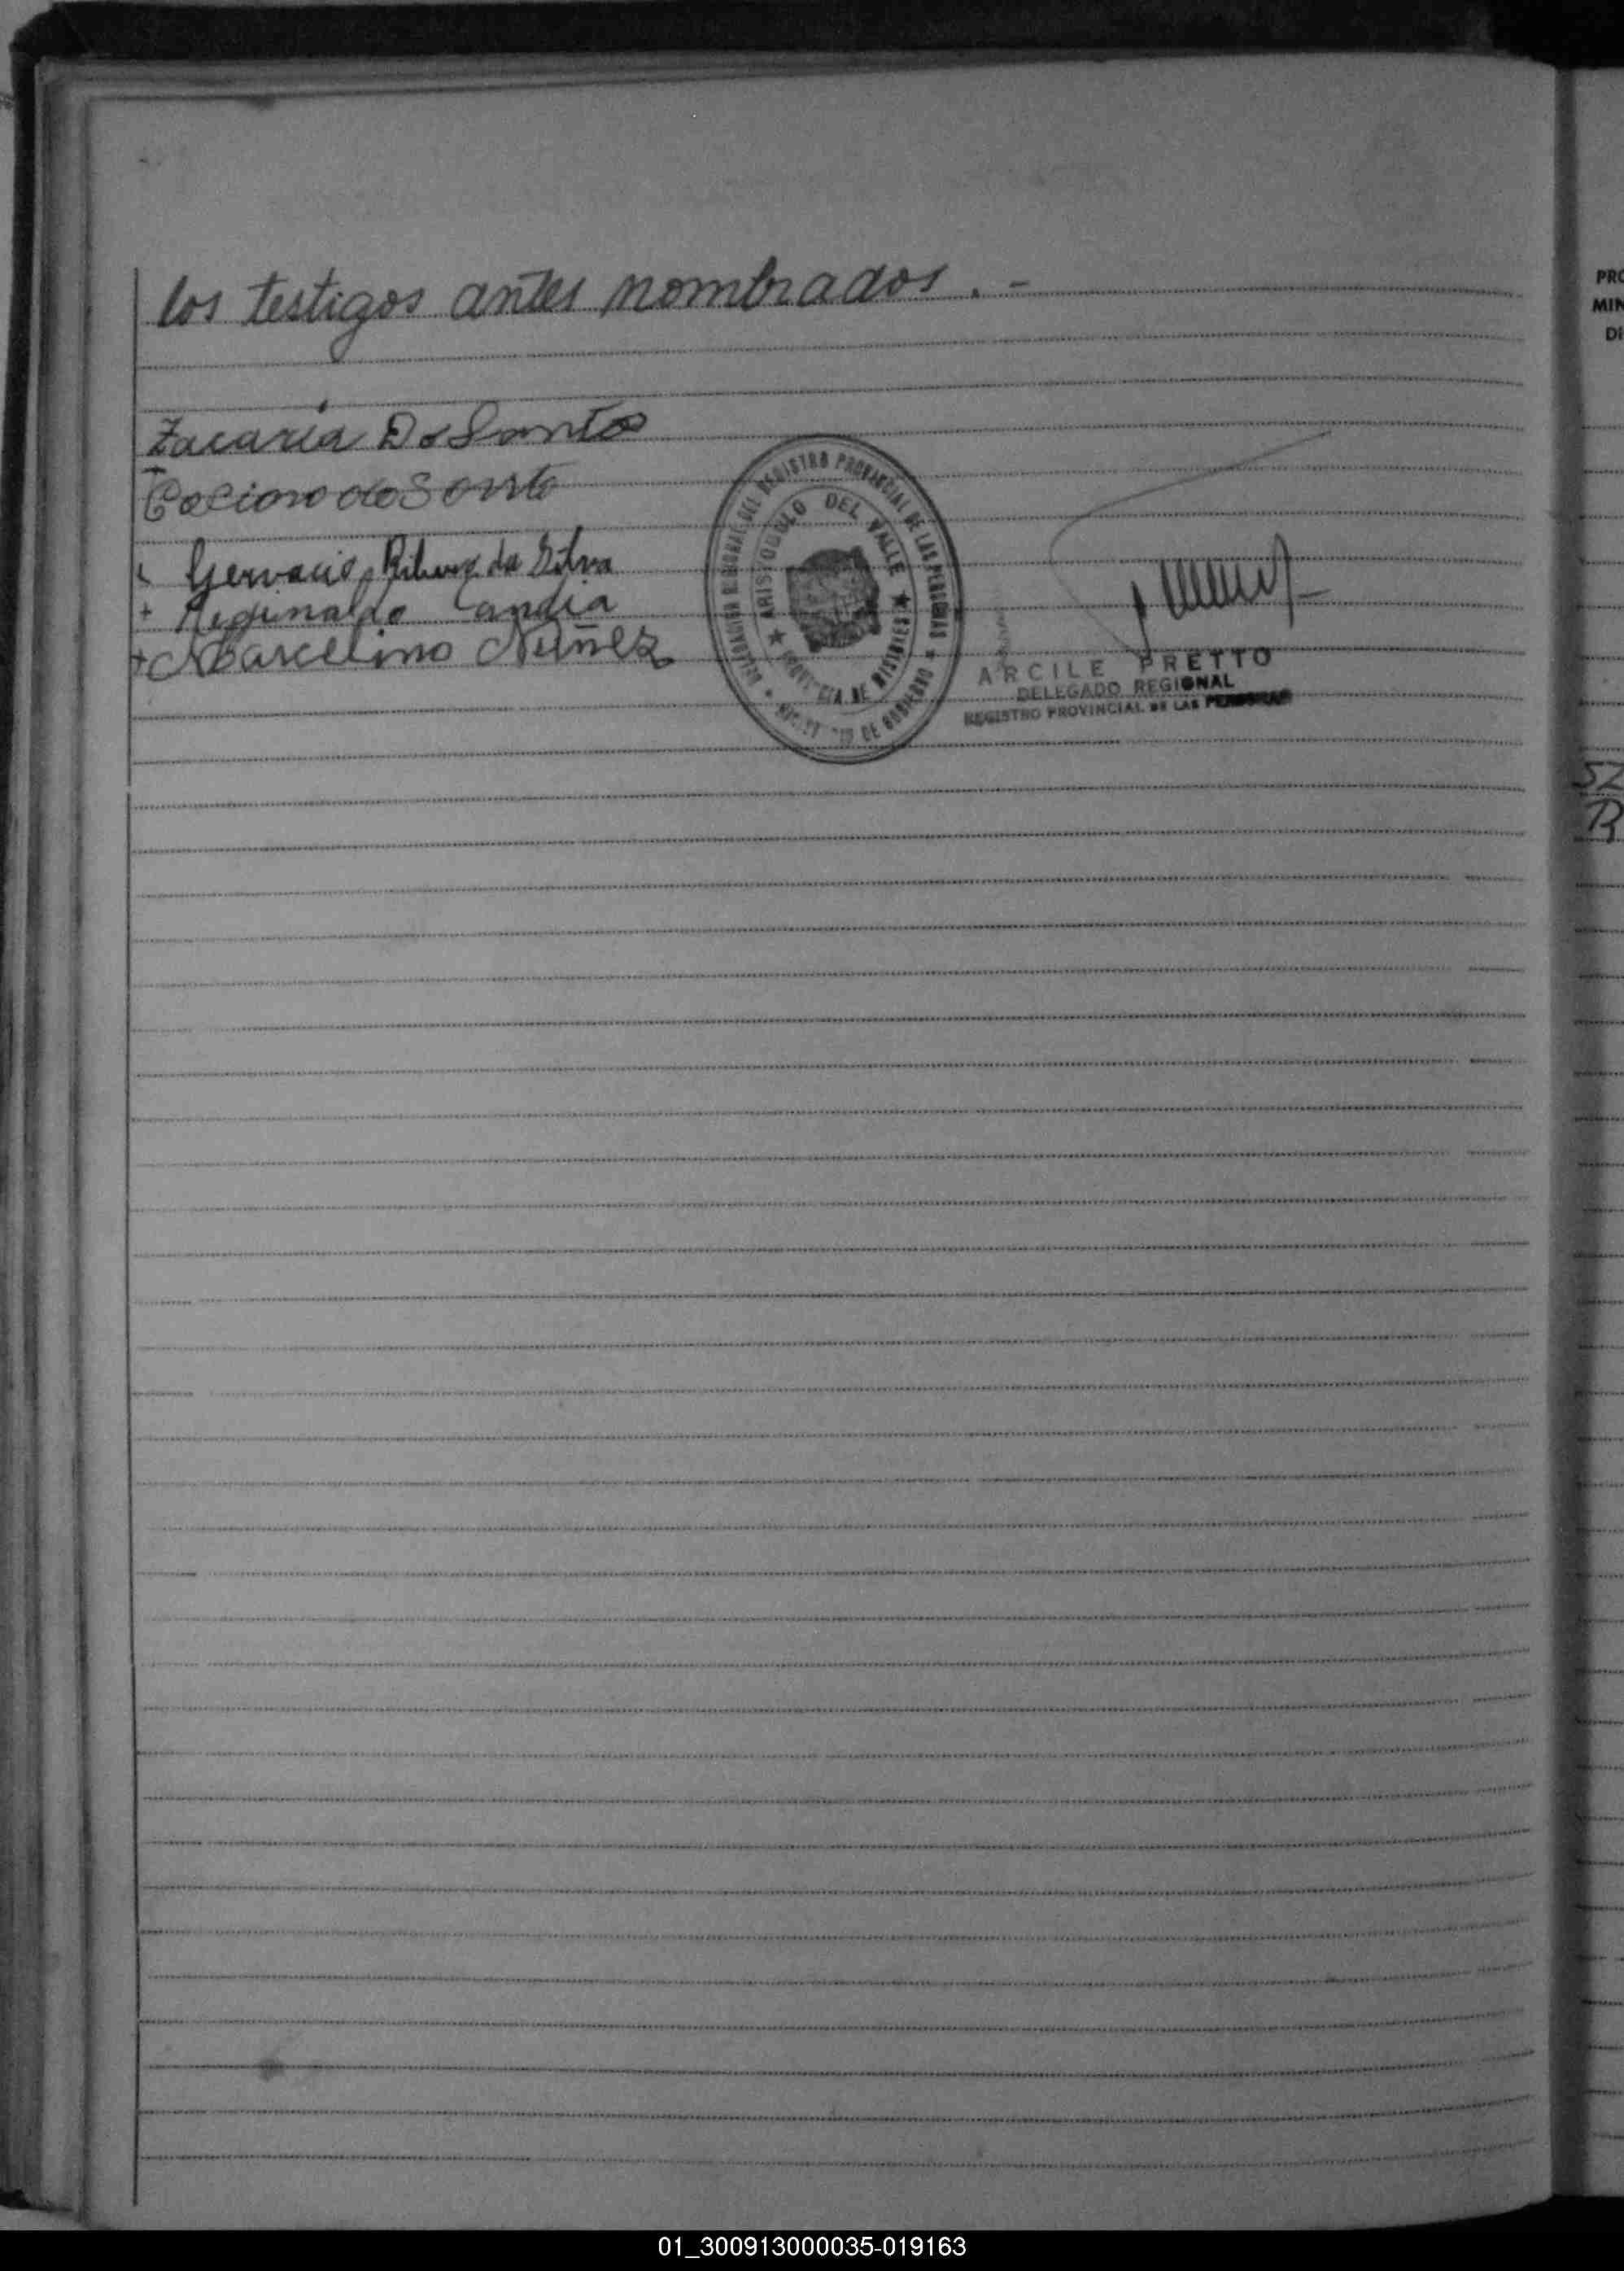 los testigos antes nombrados . -
Zacaria Do Santo
Gervacio Ribeiro da Silva
+ Reginaldo Candia
+ Marcelino Nuñez
DELEGACION REGIONAL DEL REGISTRO PROVINCIAL DE LAS PERSONAS
DE GOBIERNO
ARISTOBULO DEL VALLE
PROVINCIA DE MISIONES
ARCILE PRETTO
DELEGADO REGIONAL
REGISTRO PROVINCIAL DE LAS PERSONAS
PRO
MIN
DI
52
B
01_300913000035-019163